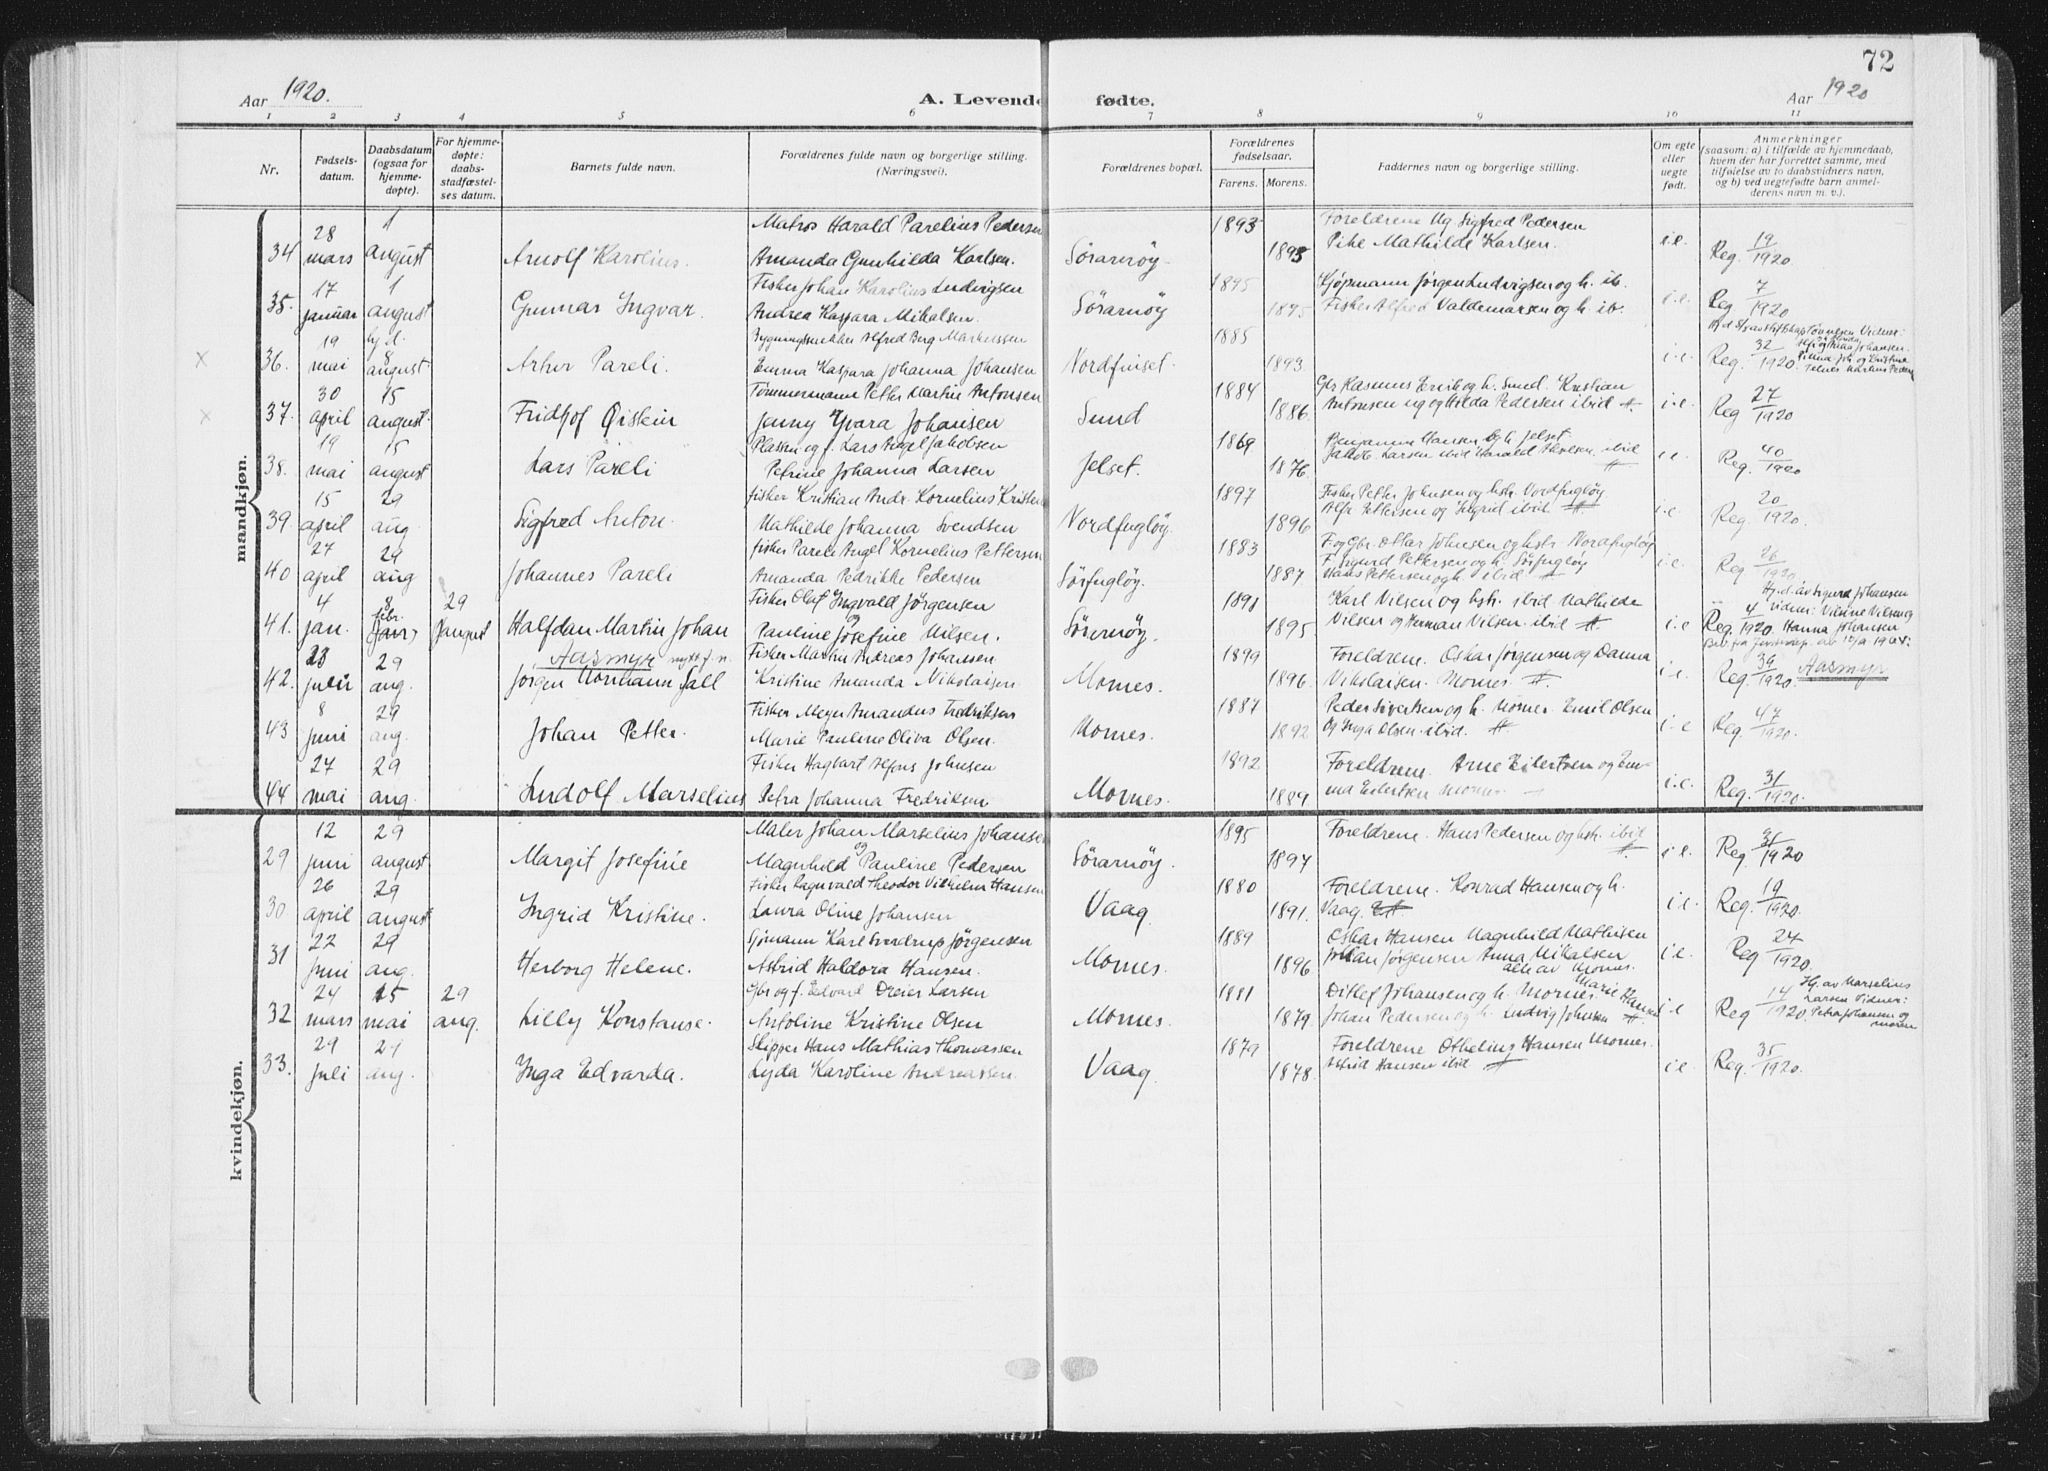 72
Aar 1920.
A. Levende fødte.
Aar 1920
1 2 3 4 5 6 7 8 9 10 11
Nr.
Fødsels-
datum.
Daabsdatum
(ogsaa for
hjemme-
døpte).
For hjemme-
døpte:
daabs-
stadfæstel-
ses datum.
Barnets fulde navn.
Forældrenes fulde navn og borgerlige stilling.
(Næringsvei).
Forældrenes bopæl.
Forældrenes
fødselsaar.
Farens. Morens.
Faddernes navn og borgerlige stilling.
Om egte
eller
uegte
født.
Anmerkninger
(saasom: a) i tilfælde av hjemmedaab,
hvem der har forrettet samme, med
tilføielse av to daabsvidners navn,
og b) ved uegtefødte barn anmel-
derens navn m. v.).
mandkjøn.
28 1 Matros Harald Parelius Pedersen 1893 Foreldrene Ug Sigfred Pedersen
34 mars august Arnolf Karolius. Amanda Gunhilda Karlsen. Sörarnöy 1893 Pike Mathilde Karlsen. i.e. Reg. 19/1920.
17 1 Fisker Johan Karolius Ludvigsen 1895 Kjöpmann Jörgen Ludvigsen og h. ib.
35. januar august Gunnar Ingvar. Andrea Kaspara Mikalsen. Sörarnöy 1895 Fisker Alfred Valdemarsen og h. ib. i.e. Reg 7/1920
19 hj. d. Alfred Berg Markussen 1885
36. mai 8 august Artur Pareli. Emma Kaspara Johanna Johansen Nordfinset 1893. i.e. Reg. 32/1920.
30 15 Tömmermann Petter Martin Antonsen 1884 Gbr Rasmus Ervik og h. Sund. Kristian
37. april august. Fridtjof Öistein Jenny Yvara Johansen Sund 1886. Antonsen ug og Hilda Pedersen ibid i.e. Reg 27/1920
19 15 Plassm og f. Lars Angel Jakobsen 1869 Benjamin Hansen og h Jelset.
38. mai august Lars Pareli Petrine Johanna Larsen Jelset. 1876 Jakob Larsen ibid Harald ibid i.e. Reg. 40/1920
15 29 fisker Kristian Andr. Kornelius Kristen 1897 Fisker Petter Johnsen og hstr. Nordfugløy
39. april aug. Sigfred Anton. Mathilde Johanna Svendsen Nordfuglöy. 1896 Alfr Pettersen og Ingrid ibid i.e. Reg. 20/1920.
27 29 fisker Pareli Angel Kornelius Pettersen 1883 F. og Gbr. Ottar Johnsen og hstr. Nordfugløy
40 april aug Johannes Pareli Amanda Pedrikke Pedersen Sörfuglöy. 1887 F. Sigurd Pettersen og h. Sörfuglöy Hans Pettersen og h ibid i.e. Reg 26/1920
4 8 febr. 29 Fisker Oluf Ingvald Jörgensen 1891 Karl Nilsen og hstr. ibid Mathilde Hj.d. av Sigurd Johansen
41. jan. august Halfdan Martin Johan Pauline Josefine Nilsen. Sörarnöy. 1895 Nilsen og Herman Nilsen. ibid i.e. Reg. 4/1920. vidner: Nilsen og Hanna Johansen
23 29 Aasmyr nytt f. n. Fisker Martin Andreas Johansen 1899 Foreldrene. Oskar Jörgensen og Danna
42. juli aug. Jörgen Normann Fall Kristine Amanda Nikolaisen Mornes. 1896. Nikolaisen. Mornes. i.e. Reg. 39/1920. Aasmyr
8 29 Fisker Meyer Amandus Fredriksen 1887 Peder Sivertsen og h. Mornes Emil Olsen
43 juni aug. Johan Petter. Marie Pauline Oliva Olsen. Mornes. 1892 Og Inga Olsen. ibid. i.e Reg. 47/1920.
27 29 Fisker Hagbart Alfons Johnsen 1892 Foreldrene. Arne Eilertsen og Em-
44 mai aug. Ludolf Marselius Petra Johanna Fredriksen Mornes. 1889 ma Eilertsen Mornes i.e. Reg. 31/1920.
kvindekjøn.
12 29 Maler Johan Marselius Johansen 1895 Foreldrene. Hans Pedersen og hstr. ibid
29 juni august. Margit Josefine og Magnhild Pauline Pedersen Sörarnöy. 1897 i.e. Reg. 31/1920
26 29 Fisker Ragnvald Theodor Vilhelm Hansen 1880 Foreldrene. Konrad Hansen og h.
30 april august Ingrid Kristine. Laura Oline Johansen Vaag. 1891. Vaag. i.e. Reg. 19/1920.
22 29 Sjömann Karl Sverdrup Jörgensen 1889 Oskar Hansen Magnhild Mathisen
31 juni aug. Herborg Helene. Astrid Haldora Hansen. Mornes. 1896 Johan Jörgensen Anna Mikalsen alle av Mornes. i.e. Reg 24/1920
24 15 29 Gbr og f. Edvard Dreier Larsen 1881 Ditlef Johansen og h. Mornes Marie Hansen Hj. av Marselius
32 mars mai aug. Lilly Konstanse. Antoline Kristine Olsen Mornes. 1879. Johan Pedersen og h. Ludvig Johnsen i.e Reg 14/1920. Larsen Vidner: Petra Johansen og moren
29 29 Skipper Hans Mathias Thomassen 1879 Foreldrene Othelius Hansen Mornes.
33. juli aug. Inga Edvarda. Lyda Karoline Andreassen. Vaag. 1878. Astrid Hansen ibid i.e. Reg. 35/1920.